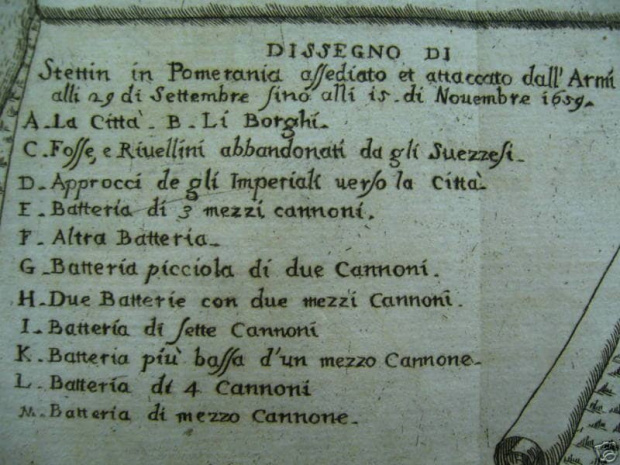 DISSEGNO DI
Stettin in Pomerania assediato et attaccato dall'Armi
alli 29 di Settembre sino alli 15. di Nouembre 1659.
A. La Città. B. Li Borghi.
C. Fosse, e Riuellini abbandonati da gli Suezzesi.
D. Approcci de gli Imperiali uerso la Città.
E. Batteria di 3 mezzi cannoni.
F. Altra Batteria.
G. Batteria picciola di due Cannoni.
H. Due Batterie con due mezzi Cannoni.
I. Batteria di sette Cannoni
K. Batteria più bassa d'un mezzo Cannone.
L. Batteria di 4 Cannoni
M. Batteria di mezzo Cannone.